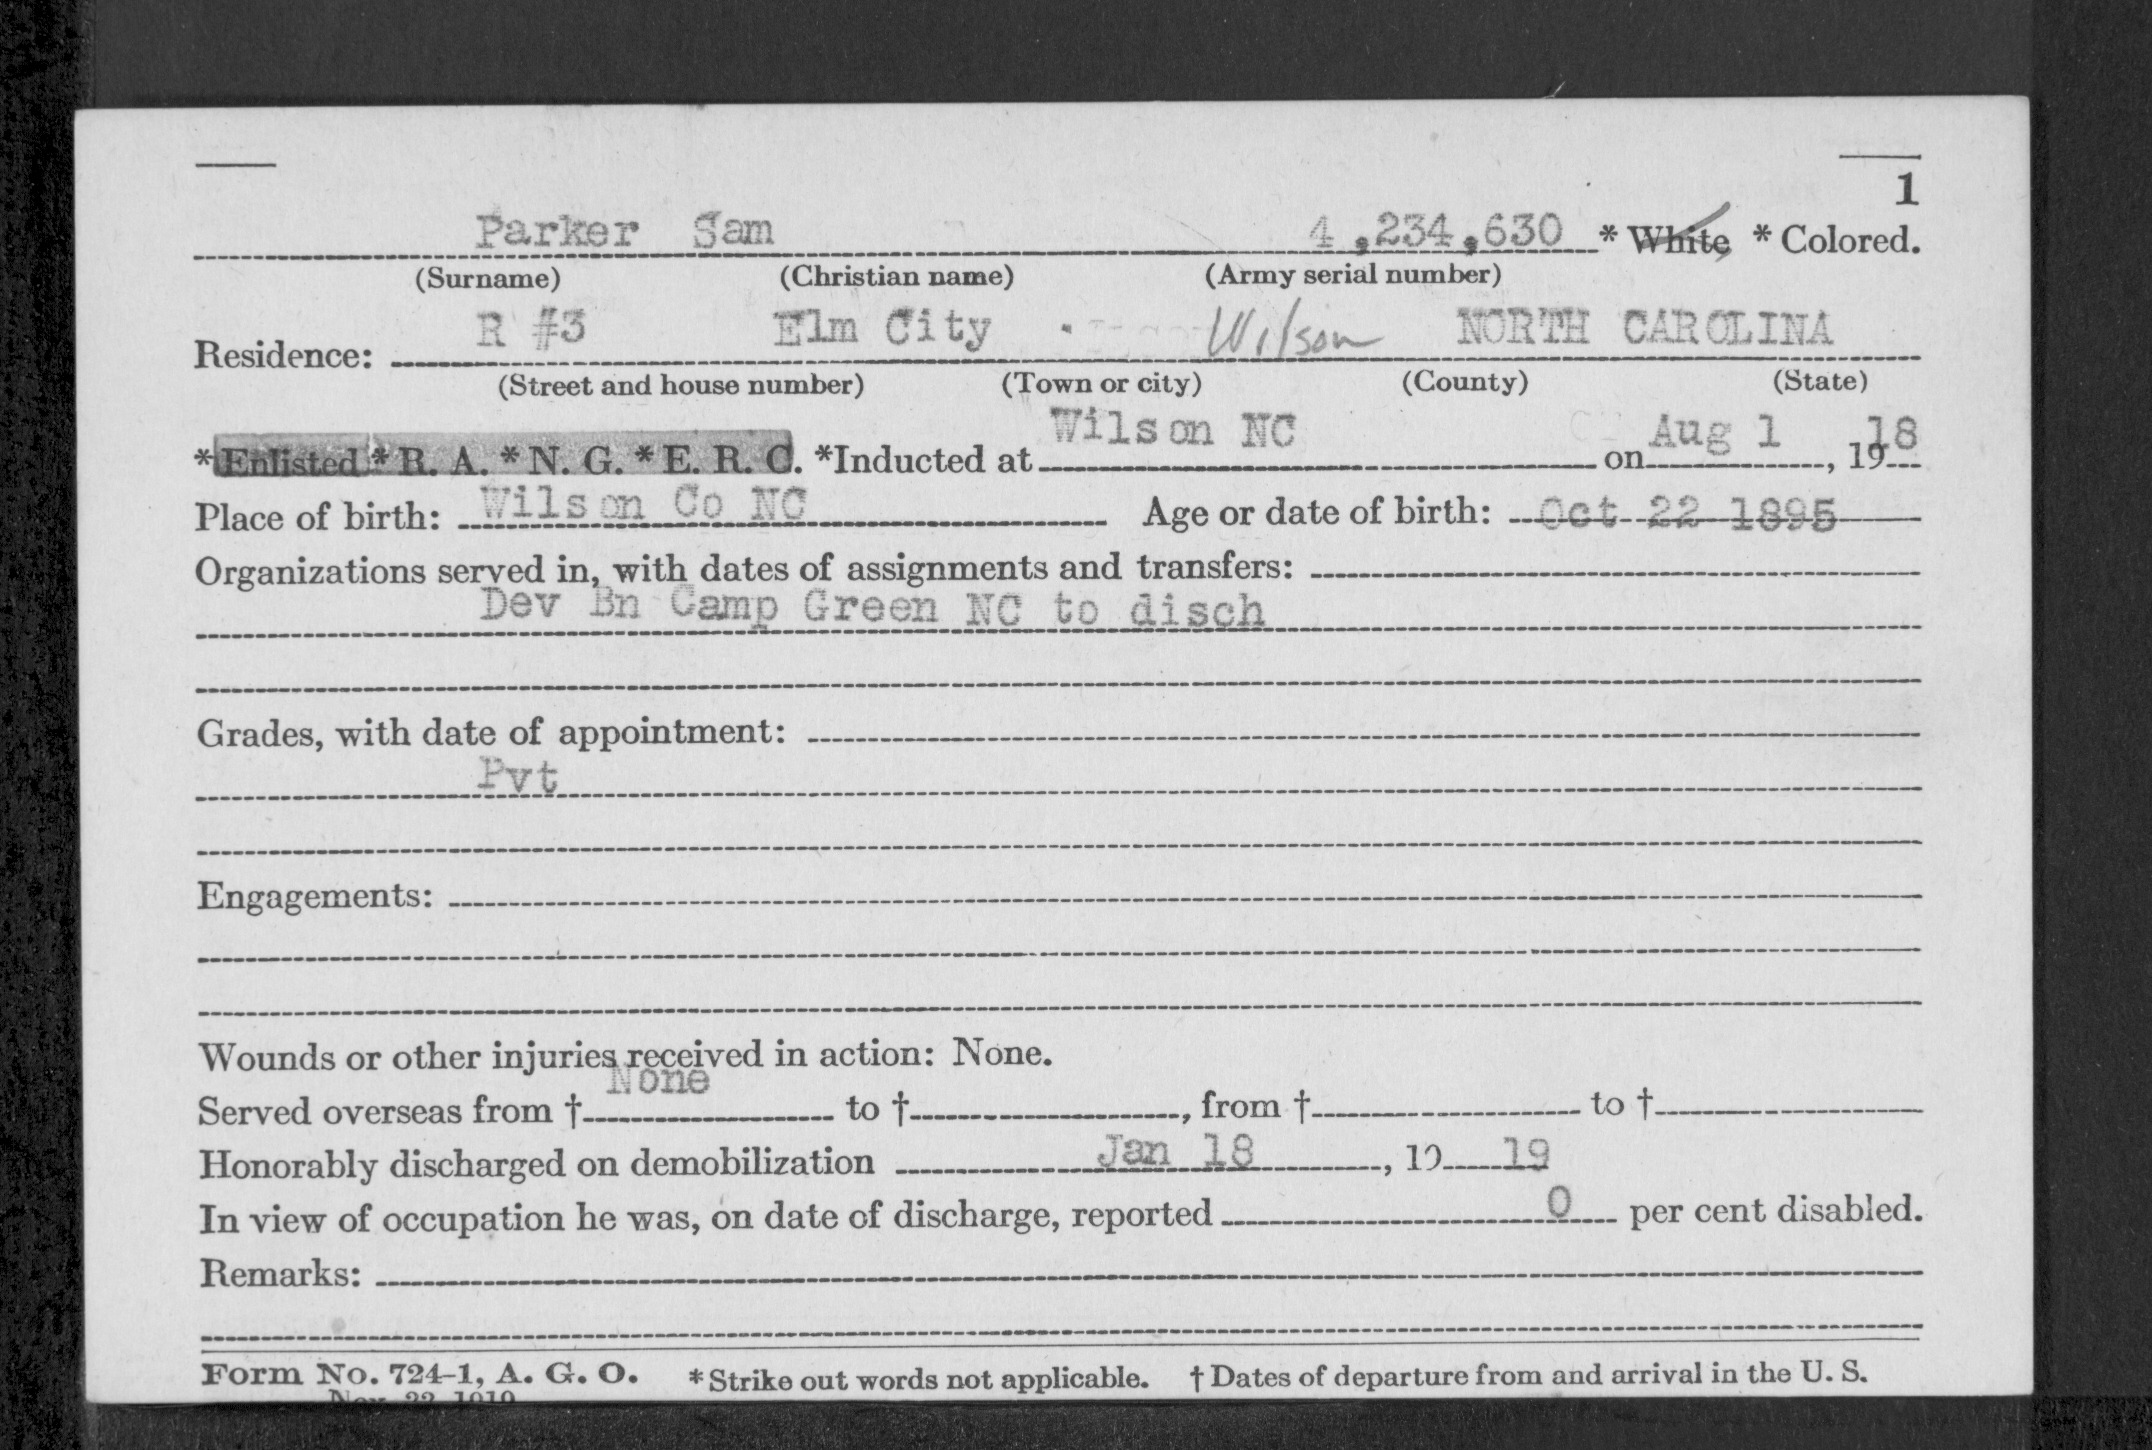 1
Parker Sam 4,234,630 * White * Colored.
(Surname) (Christian name) (Army serial number)
Residence: R #3 Elm City Wilson NORTH CAROLINA
(Street and house number) (Town or city) (County) (State)
*Enlisted * R. A. * N. G. * E. R. C. *Inducted at Wilson NC on Aug 1, 1918
Place of birth: Wilson Co NC Age or date of birth: Oct 22 1895
Organizations served in, with dates of assignments and transfers:
Dev Bn Camp Green NC to disch
Grades, with date of appointment:
Pvt
Engagements:
Wounds or other injuries received in action: None.
Served overseas from † None to †, from † to †
Honorably discharged on demobilization Jan 18, 19 19
In view of occupation he was, on date of discharge, reported 0 per cent disabled.
Remarks:
Form No. 724-1, A. G. O. * Strike out words not applicable. † Dates of departure from and arrival in the U. S.
Nov. 22 1919